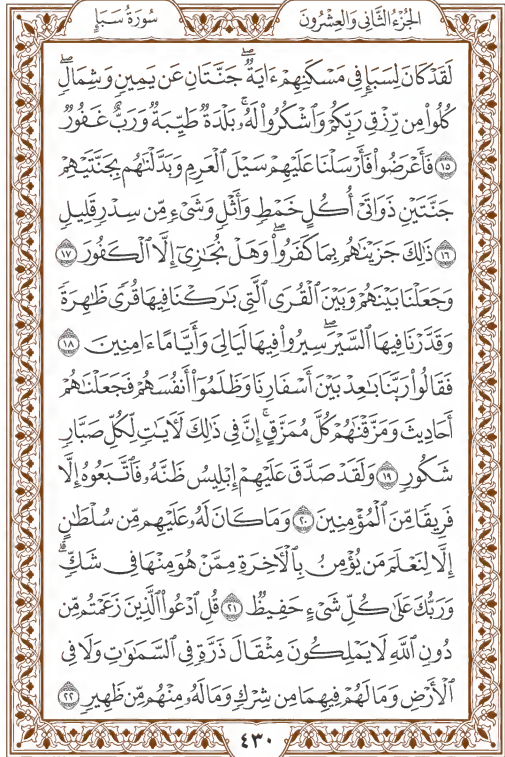 الجزء الثاني والعشرون
سورة سبإ
لَقَدْ كَانَ لِسَبَإٖ فِي مَسْكَنِهِمْ ءَايَةٞۖ جَنَّتَانِ عَن يَمِينٖ وَشِمَالٖۖ
كُلُواْ مِن رِّزْقِ رَبِّكُمْ وَٱشْكُرُواْ لَهُۥۚ بَلْدَةٞ طَيِّبَةٞ وَرَبٌّ غَفُورٞ
١٥ فَأَعْرَضُواْ فَأَرْسَلْنَا عَلَيْهِمْ سَيْلَ ٱلْعَرِمِ وَبَدَّلْنَٰهُم بِجَنَّتَيْهِمْ
جَنَّتَيْنِ ذَوَاتَيْ أُكُلٍ خَمْطٖ وَأَثْلٖ وَشَيْءٖ مِّن سِدْرٖ قَلِيلٖ
١٦ ذَٰلِكَ جَزَيْنَٰهُم بِمَا كَفَرُواْۖ وَهَلْ نُجَٰزِيٓ إِلَّا ٱلْكَفُورَ ١٧
وَجَعَلْنَا بَيْنَهُمْ وَبَيْنَ ٱلْقُرَى ٱلَّتِي بَٰرَكْنَا فِيهَا قُرٗى ظَٰهِرَةٗ
وَقَدَّرْنَا فِيهَا ٱلسَّيْرَۖ سِيرُواْ فِيهَا لَيَالِيَ وَأَيَّامًا ءَامِنِينَ ١٨
فَقَالُواْ رَبَّنَا بَٰعِدْ بَيْنَ أَسْفَارِنَا وَظَلَمُوٓاْ أَنفُسَهُمْ فَجَعَلْنَٰهُمْ
أَحَادِيثَ وَمَزَّقْنَٰهُمْ كُلَّ مُمَزَّقٍۚ إِنَّ فِي ذَٰلِكَ لَأٓيَٰتٖ لِّكُلِّ صَبَّارٖ
شَكُورٖ ١٩ وَلَقَدْ صَدَّقَ عَلَيْهِمْ إِبْلِيسُ ظَنَّهُۥ فَٱتَّبَعُوهُ إِلَّا
فَرِيقٗا مِّنَ ٱلْمُؤْمِنِينَ ٢٠ وَمَا كَانَ لَهُۥ عَلَيْهِم مِّن سُلْطَٰنٍ
إِلَّا لِنَعْلَمَ مَن يُؤْمِنُ بِٱلْأٓخِرَةِ مِمَّنْ هُوَ مِنْهَا فِي شَكّٖۗ
وَرَبُّكَ عَلَىٰ كُلِّ شَيْءٍ حَفِيظٞ ٢١ قُلِ ٱدْعُواْ ٱلَّذِينَ زَعَمْتُم مِّن
دُونِ ٱللَّهِ لَا يَمْلِكُونَ مِثْقَالَ ذَرَّةٖ فِي ٱلسَّمَٰوَٰتِ وَلَا فِي
ٱلْأَرْضِ وَمَا لَهُمْ فِيهِمَا مِن شِرْكٖ وَمَا لَهُۥ مِنْهُم مِّن ظَهِيرٖ ٢٢
٤٣٠